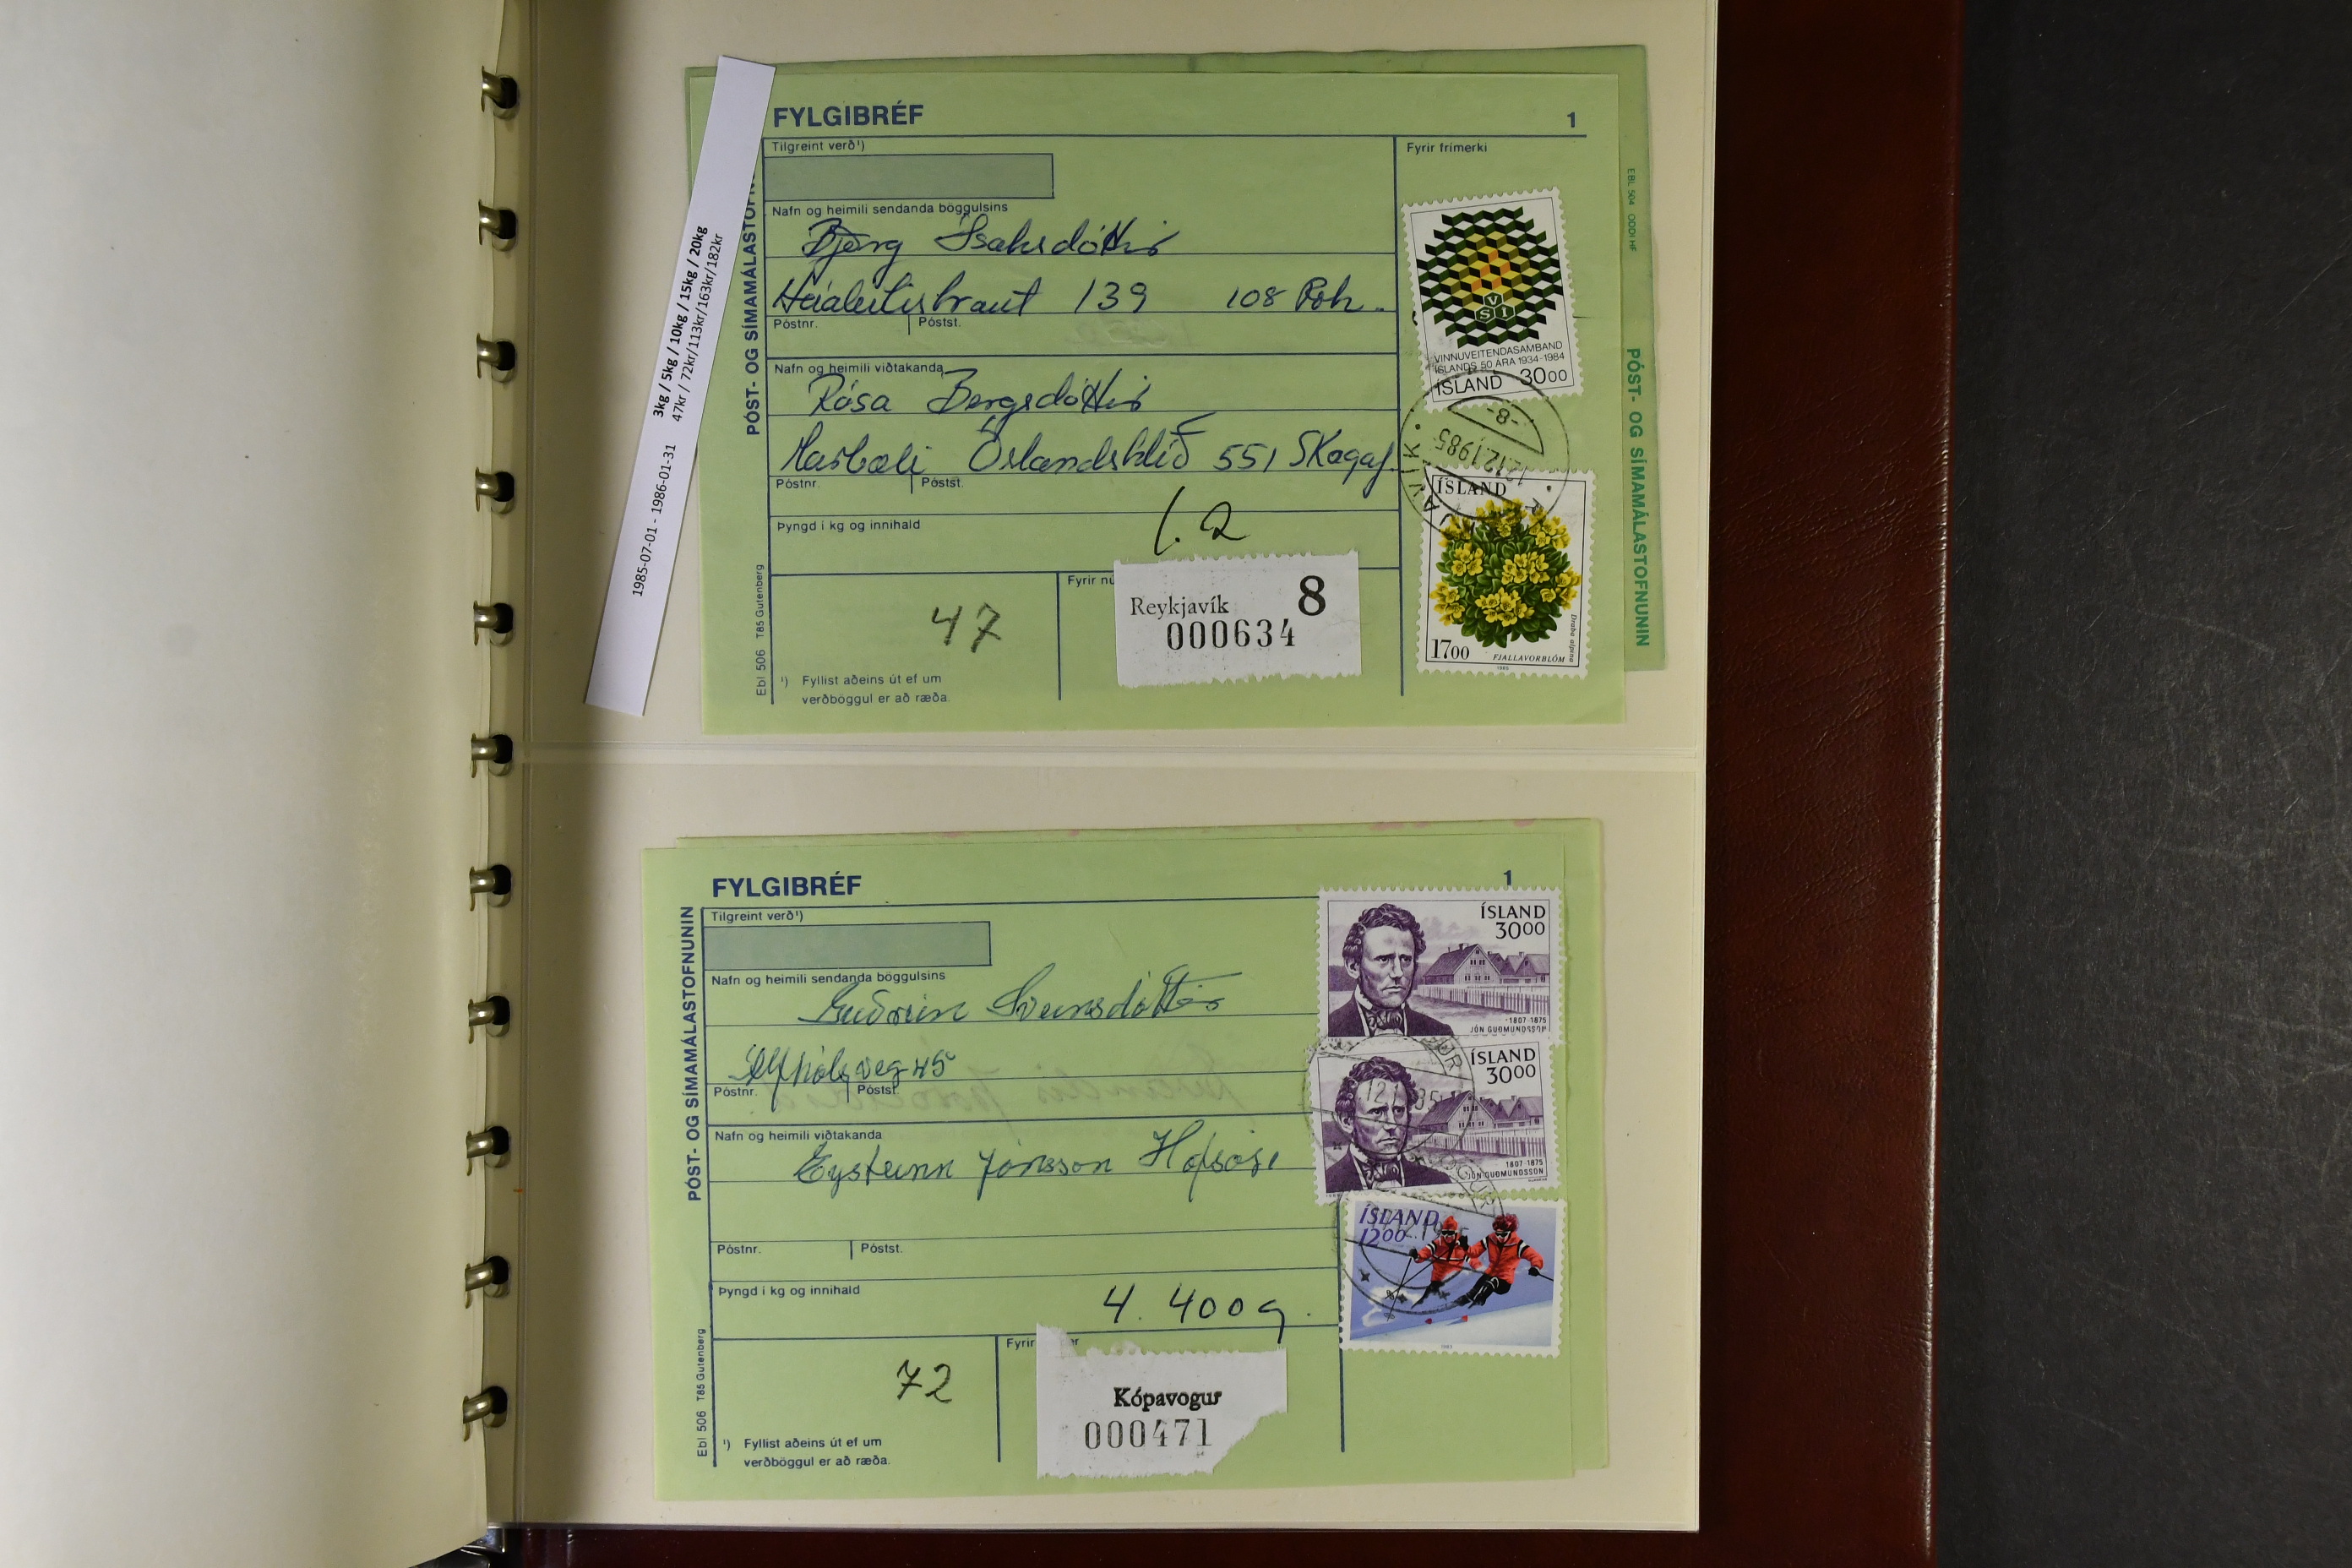 1985-07-01 - 1986-01-31
3kg / 5kg / 10kg / 15kg / 20kg
47kr / 72kr/113kr/163kr/182kr
FYLGIBRÉF
1
Tilgreint verð¹)
Fyrir frímerki
PÓST- OG SÍMAMÁLASTOFN
Nafn og heimili sendanda böggulsins
Björg Ísaksdóttir
Háaleitisbraut 139 108 Rvk.
Póstnr. Póstst.
Nafn og heimili viðtakanda
Rósa Bergsdóttir
Marbæli Óslandshlíð 551 Skagaf.
Póstnr. Póstst.
Þyngd í kg og innihald
1.2
47
Fyrir nú
Reykjavík 8
000634
¹) Fyllist aðeins út ef um
verðböggul er að ræða.
Ebl 506 T85 Gutenberg
VSÍ
VINNUVEITENDASAMBAND
ÍSLANDS 50 ÁRA 1934-1984
ÍSLAND 3000
-8-
12.12.1985
JAVÍK
ÍSLAND
1700
FJALLAVORBLÓM
Draba alpina
1985
EBL 504 ODDI HF
PÓST- OG SÍMAMÁLASTOFNUNIN
FYLGIBRÉF
1
Tilgreint verð¹)
PÓST- OG SÍMAMÁLASTOFNUNIN
Nafn og heimili sendanda böggulsins
Guðrún Sveinsdóttir
Álfhólsveg 45
Póstnr. Póstst.
Nafn og heimili viðtakanda
Eysteinn Jónsson Hofsósi
Póstnr. Póstst.
Þyngd í kg og innihald
4. 400g.
72
Fyrir er
Kópavogur
000471
¹) Fyllist aðeins út ef um
verðböggul er að ræða.
Ebl 506 T85 Gutenberg
ÍSLAND
3000
1807-1875
JÓN GUÐMUNDSSON
ÍSLAND
3000
1807-1875
JÓN GUÐMUNDSSON
ÍSLAND
1200
1983